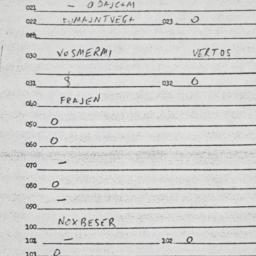 021 -
022 023 0
030 VOSMERMI VERTOS
031 8 032 0
040 FRAJEN
050 0
060 0
070 -
080 0
-
090
100 NOXBESER
101 - 102 0
103 0